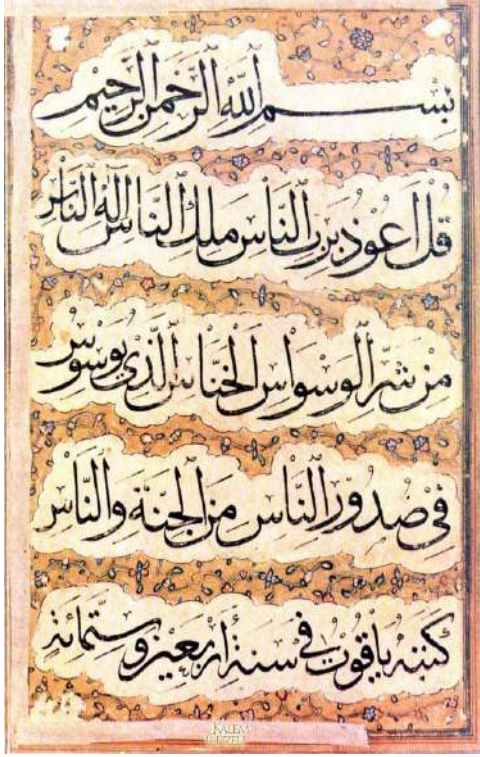 بِسْمِ اللَّهِ الرَّحْمٰنِ الرَّحِيمِ
قُلْ اَعُوْذُ بِرَبِّ النَّاسِ مَلِكِ النَّاسِ اِلٰهِ النَّاسِ
مِنْ شَرِّ الْوَسْوَاسِ الْخَنَّاسِ الَّذِي يُوَسْوِسُ
فِيْ صُدُوْرِ النَّاسِ مِنَ الْجِنَّةِ وَالنَّاسِ
كَتَبَهُ يَاقُوْت فِي سَنَةِ أَرْبَعِيْنَ وَسِتَّمِائَة
KALEM